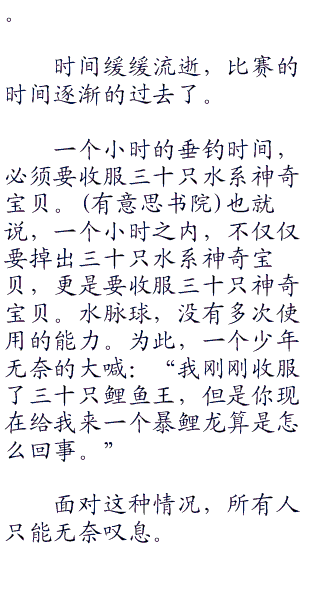 。
时间缓缓流逝，比赛的
时间逐渐的过去了。
一个小时的垂钓时间，
必须要收服三十只水系神奇
宝贝。(有意思书院)也就
说，一个小时之内，不仅仅
要掉出三十只水系神奇宝
贝，更是要收服三十只神奇
宝贝。水脉球，没有多次使
用的能力。为此，一个少年
无奈的大喊：“我刚刚收服
了三十只鲤鱼王，但是你现
在给我来一个暴鲤龙算是怎
么回事。”
面对这种情况，所有人
只能无奈叹息。